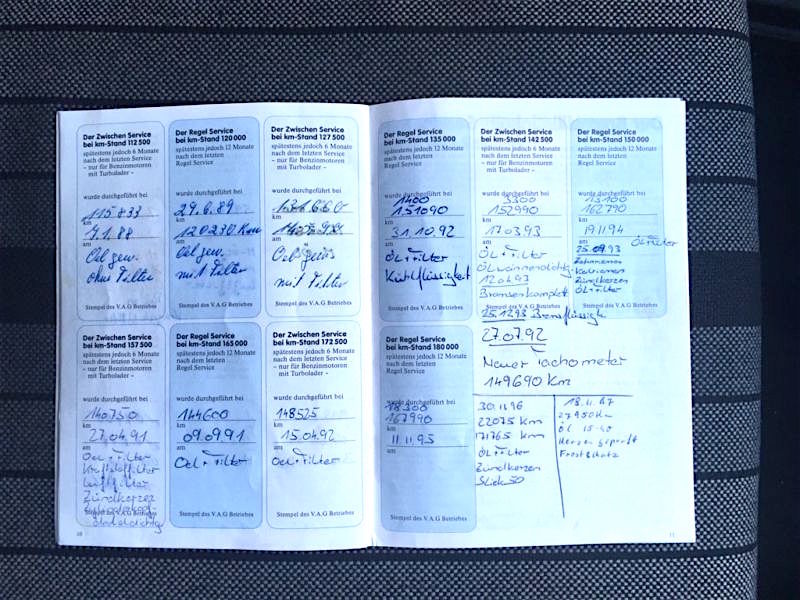 Der Zwischen Service
bei km-Stand 112 500
spätestens jedoch 6 Monate
nach dem letzten Service
– nur für Benzinmotoren
mit Turbolader –
wurde durchgeführt bei
115 833
km
7.1.88
am
Oel gew.
ohne Filter
Stempel des V.A.G Betriebes
Der Regel Service
bei km-Stand 120 000
spätestens jedoch 12 Monate
nach dem letzten
Regel Service
wurde durchgeführt bei
29.6.89
km
120230 Km
am
Oel gew.
mit Filter
Stempel des V.A.G Betriebes
Der Zwischen Service
bei km-Stand 127 500
spätestens jedoch 6 Monate
nach dem letzten Service
– nur für Benzinmotoren
mit Turbolader –
wurde durchgeführt bei
131660
km
am
Oel
mit Filter
Stempel des V.A.G Betriebes
Der Zwischen Service
bei km-Stand 157 500
spätestens jedoch 6 Monate
nach dem letzten Service
– nur für Benzinmotoren
mit Turbolader –
wurde durchgeführt bei
140750
km
27.04.91
am
Oel + Filter
Kraftstoffilter
Luftfilter
Zündkerzen
Stempel des V.A.G Betriebes
Der Regel Service
bei km-Stand 165 000
spätestens jedoch 12 Monate
nach dem letzten
Regel Service
wurde durchgeführt bei
144600
km
09.09.91
am
Oel + Filter
Stempel des V.A.G Betriebes
Der Zwischen Service
bei km-Stand 172 500
spätestens jedoch 6 Monate
nach dem letzten Service
– nur für Benzinmotoren
mit Turbolader –
wurde durchgeführt bei
148525
km
15.04.92
am
Oel + Filter
Stempel des V.A.G Betriebes
10
Der Regel Service
bei km-Stand 135 000
spätestens jedoch 12 Monate
nach dem letzten
Regel Service
wurde durchgeführt bei
1400
151090
km
31.10.92
am
ÖL + Filter
Kühlflüssigkeit
Stempel des V.A.G Betriebes
Der Zwischen Service
bei km-Stand 142 500
spätestens jedoch 6 Monate
nach dem letzten Service
– nur für Benzinmotoren
mit Turbolader –
wurde durchgeführt bei
3300
152990
km
17.03.93
am
ÖL + Filter
12.04.93
Bremsen komplett
Stempel des V.A.G Betriebes
25.12.93
Der Regel Service
bei km-Stand 150 000
spätestens jedoch 12 Monate
nach dem letzten
Regel Service
wurde durchgeführt bei
13100
162790
km
19.11.94
am
Öl Filter
25.09.93
Zahnriemen
Keilriemen
Zündkerzen
ÖL + Filter
Stempel des V.A.G Betriebes
27.07.92
Neuer Tachometer
149690 Km
Der Regel Service
bei km-Stand 180 000
spätestens jedoch 12 Monate
nach dem letzten
Regel Service
wurde durchgeführt bei
18300
167990
km
11.11.95
am
ÖL + Filter
Stempel des V.A.G Betriebes
30.11.96
22075 Km
171765 Km
ÖL + Filter
Zündkerzen
Slick 50
18.11.97
27950 Km
Öl 15-40
Frostschutz
11